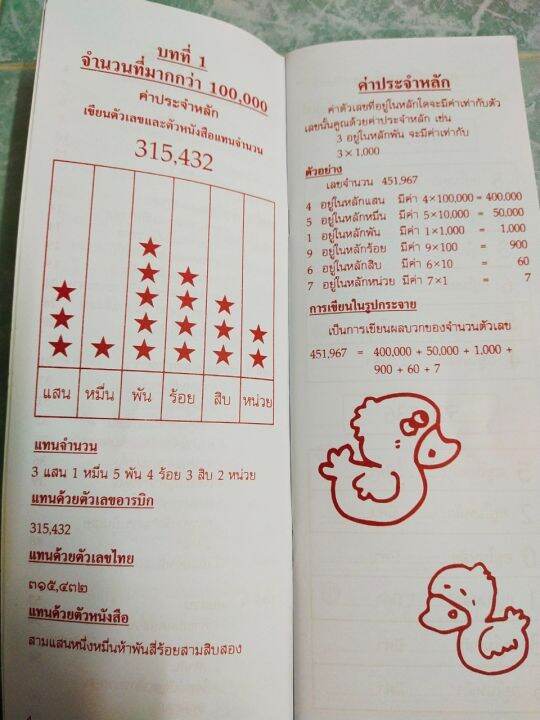 บทที่ 1
จำนวนที่มากกว่า 100,000
ค่าประจำหลัก
เขียนตัวเลขและตัวหนังสือแทนจำนวน
315,432
แสน หมื่น พัน ร้อย สิบ หน่วย
แทนจำนวน
3 แสน 1 หมื่น 5 พัน 4 ร้อย 3 สิบ 2 หน่วย
แทนด้วยตัวเลขอารบิก
315,432
แทนด้วยตัวเลขไทย
๓๑๕,๔๓๒
แทนด้วยตัวหนังสือ
สามแสนหนึ่งหมื่นห้าพันสี่ร้อยสามสิบสอง
ค่าประจำหลัก
ค่าตัวเลขที่อยู่ในหลักใดจะมีค่าเท่ากับตัว
เลขนั้นคูณด้วยค่าประจำหลัก เช่น
3 อยู่ในหลักพัน จะมีค่าเท่ากับ
3 × 1,000
ตัวอย่าง
เลขจำนวน 451,967
4 อยู่ในหลักแสน มีค่า 4×100,000 = 400,000
5 อยู่ในหลักหมื่น มีค่า 5×10,000 = 50,000
1 อยู่ในหลักพัน มีค่า 1×1,000 = 1,000
9 อยู่ในหลักร้อย มีค่า 9×100 = 900
6 อยู่ในหลักสิบ มีค่า 6×10 = 60
7 อยู่ในหลักหน่วย มีค่า 7×1 = 7
การเขียนในรูปกระจาย
เป็นการเขียนผลบวกของจำนวนตัวเลข
451,967 = 400,000 + 50,000 + 1,000 +
900 + 60 + 7